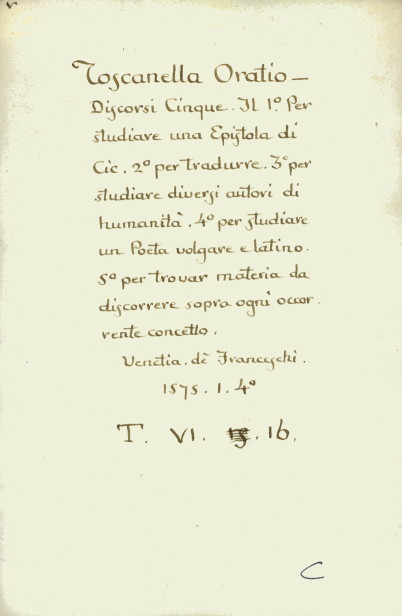 Toscanella Oratio—
Discorsi Cinque. Il 1º. Per
studiare una Epistola di
Cic. 2º per tradurre. 3º per
studiare diversi autori di
humanità. 4º per studiare
un Poeta volgare e latino.
5º per trovar materia da
discorrere sopra ogni occor-
rente concetto.
Venetia. dè Franceschi.
1575. 1. 4º
T. VI. 16.
C